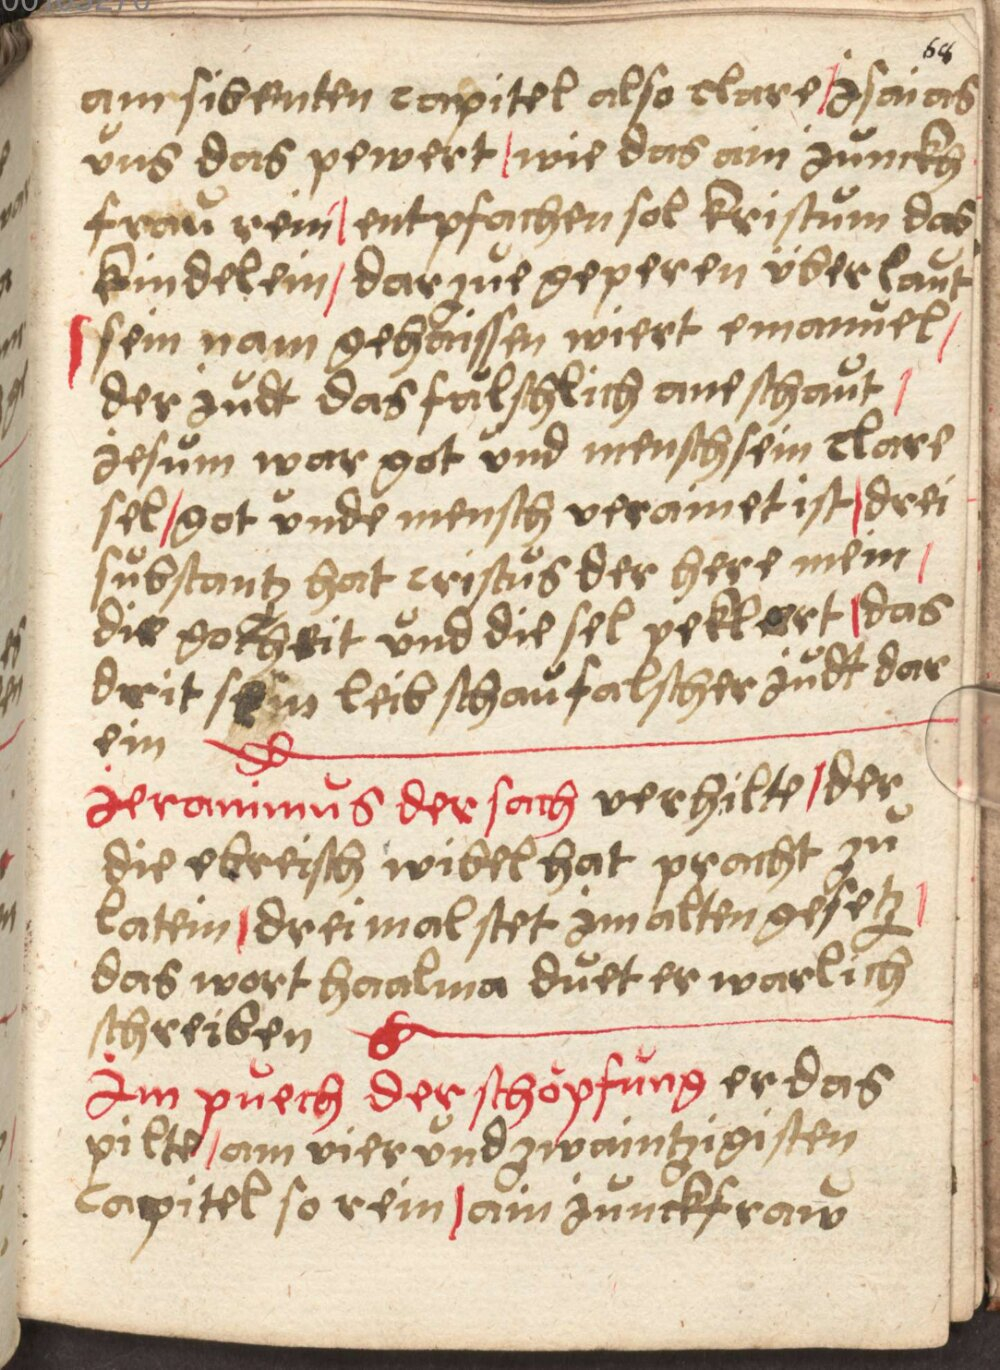 68
am sibenten capitel also clare / jsaias
vns das pewert / wie das ain junckh
frau rein / entpfachen sol kristum das
kindelein / dar zue geperen über laut
/ sein nam gehaissen wiert emanuel /
der judt das falschlich ane schaut /
jesum war got vnd mensch sein clare
sel / got vnde mensch verainet ist / drei
substantz hat cristus der here mein /
die gotheit vnd die sel peklert / das
drit sein leib schau falscher judt dar
ein
jeranimus der sach verhilte / der
die ebreisch wibel hat pracht zu
latein / drei mal stet jm alten gesetz /
das wort haalma duet er warlich
schreiben
Im puech der schöpfung er das
pilte / am vier vnd zwaintzigisten
Capitel so rein / ain junckfraw